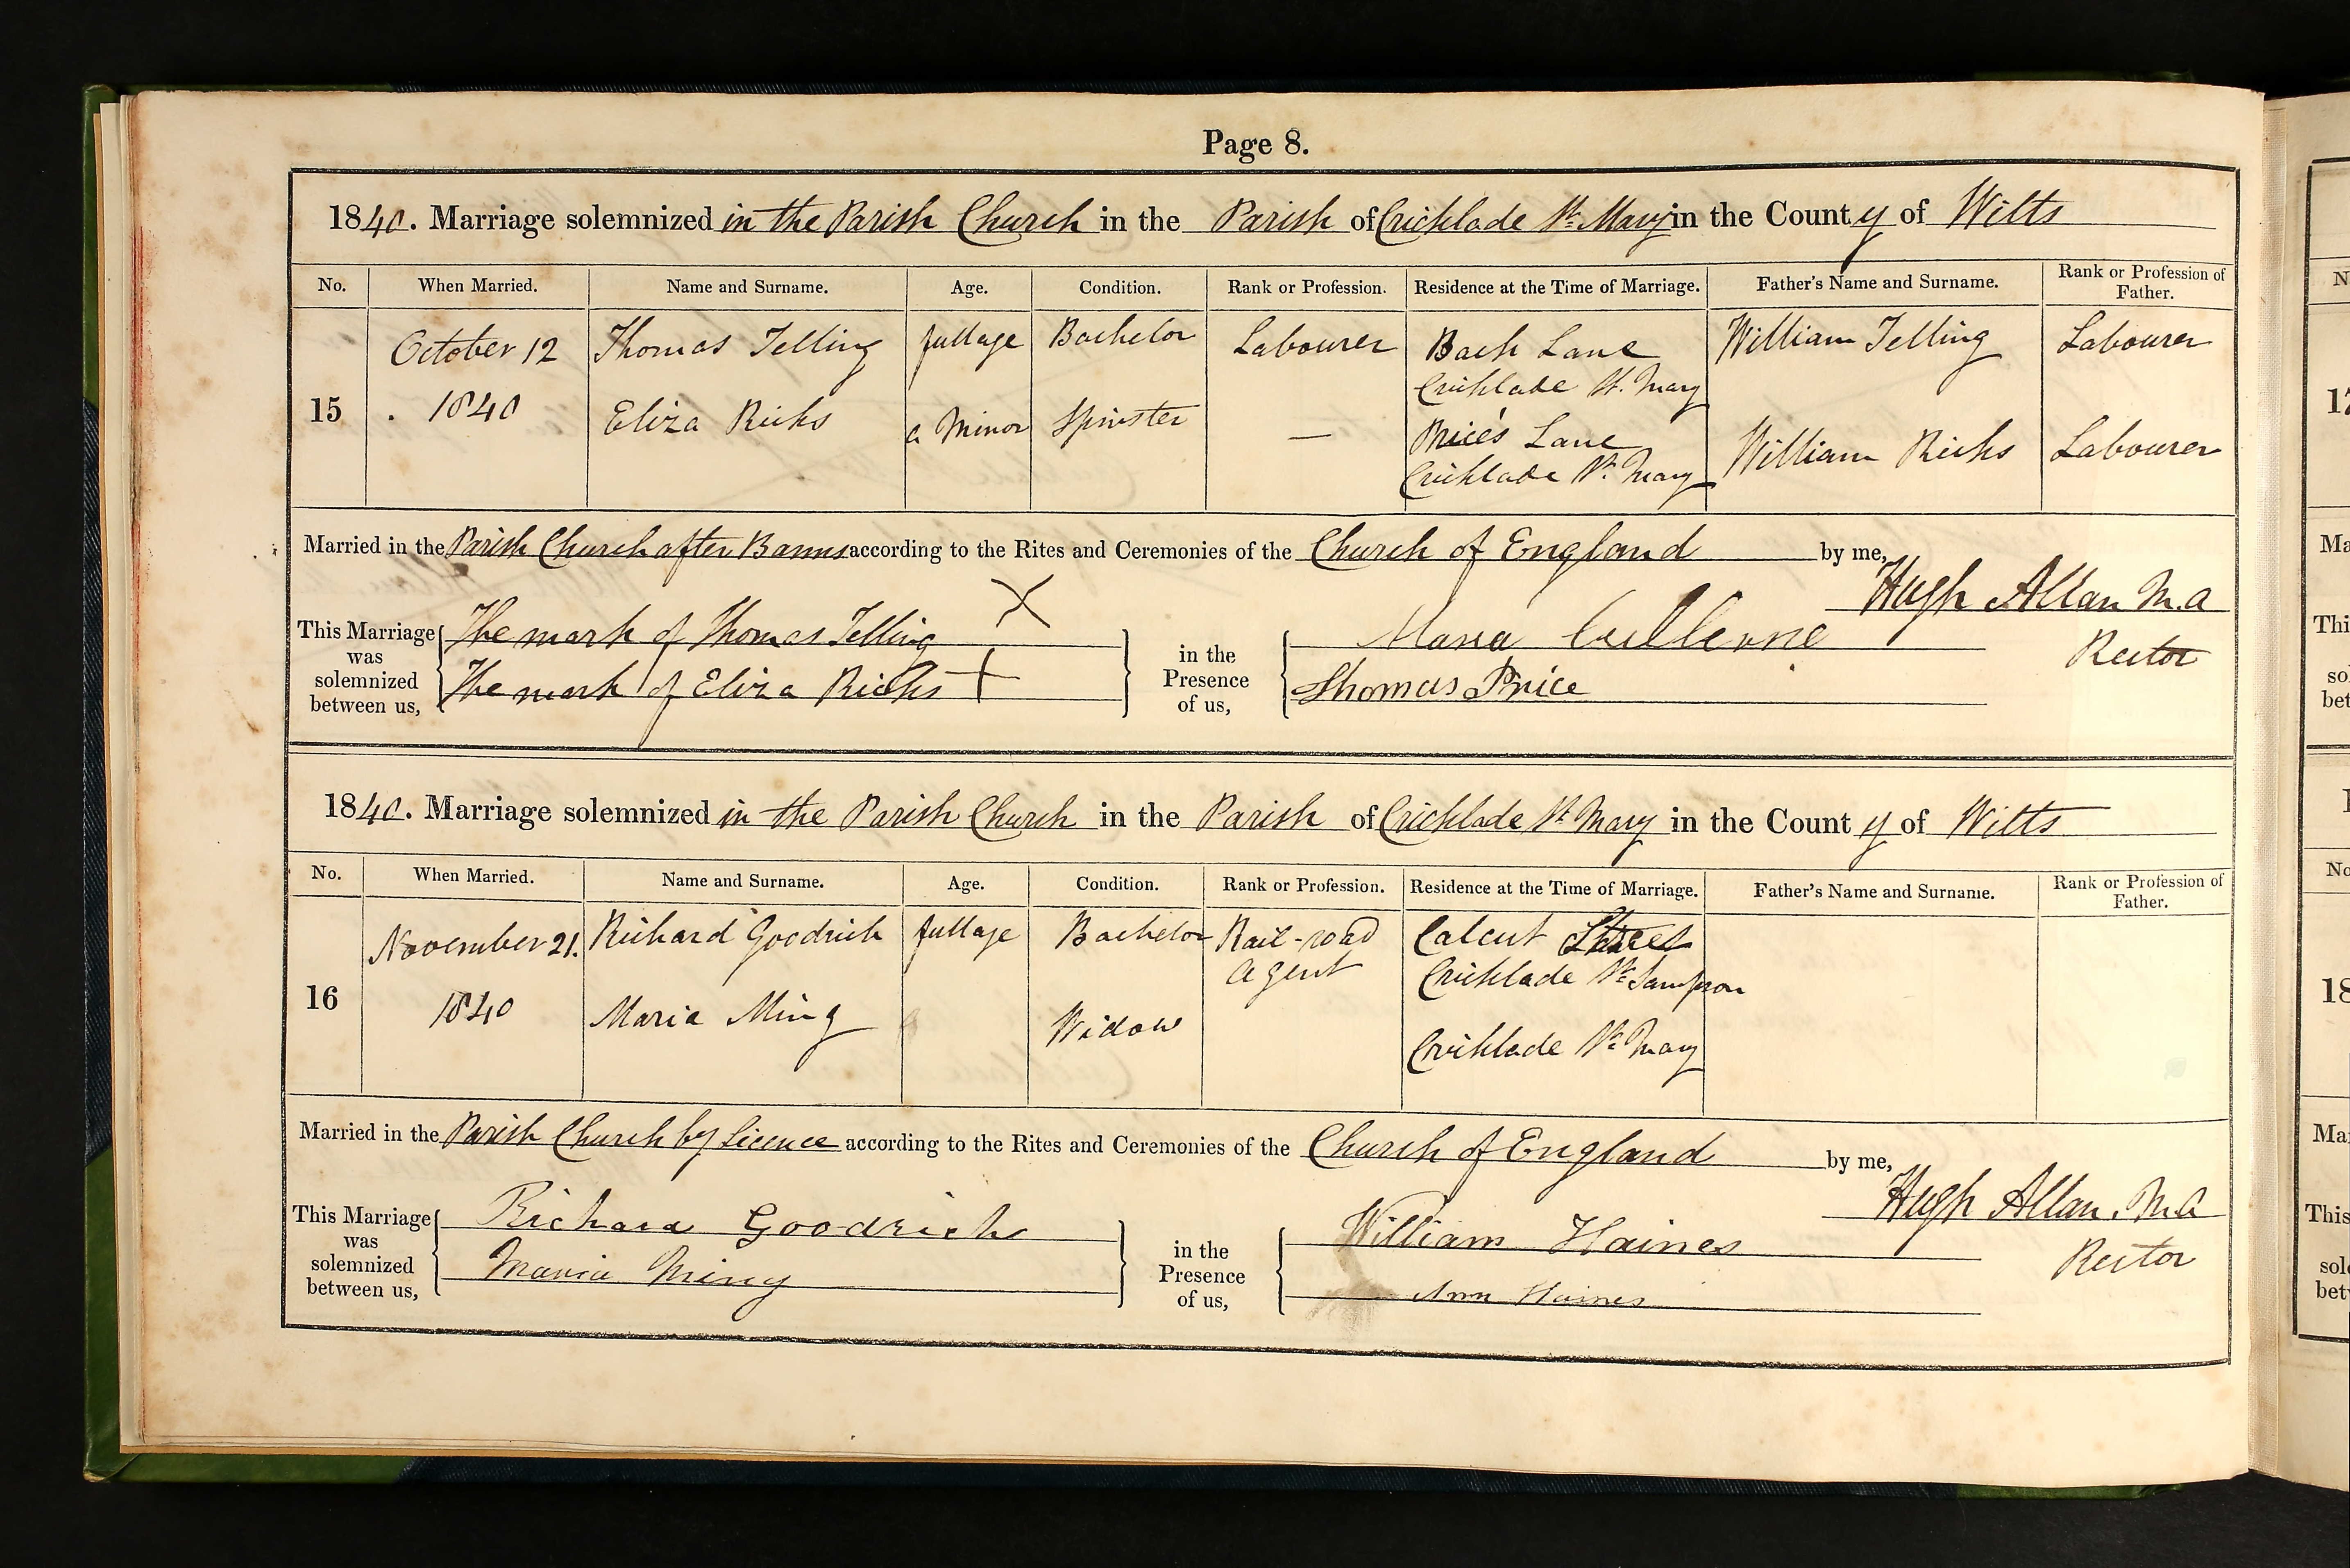 Page 8.
1840. Marriage solemnized in the Parish Church in the Parish of Cricklade St. Mary in the County of Wilts
No. When Married. Name and Surname. Age. Condition. Rank or Profession. Residence at the Time of Marriage. Father's Name and Surname. Rank or Profession of Father.
15 October 12 1840 Thomas Telling full age Bachelor Labourer Back Lane Cricklade St. Mary William Telling Labourer
Eliza Ricks a Minor Spinster — Price's Lane Cricklade St. Mary William Ricks Labourer
Married in the Parish Church after Banns according to the Rites and Ceremonies of the Church of England by me,
Hugh Allan M.A
Rector
This Marriage was solemnized between us,
The mark of Thomas Telling X
The mark of Eliza Ricks +
in the Presence of us,
Maria
Thomas Price
1840. Marriage solemnized in the Parish Church in the Parish of Cricklade St. Mary in the County of Wilts
No. When Married. Name and Surname. Age. Condition. Rank or Profession. Residence at the Time of Marriage. Father's Name and Surname. Rank or Profession of Father.
16 November 21. 1840 Richard Goodrich full age Bachelor Rail-road Agent Calcut Street Cricklade St. Sampson
Maria Ming Widow Cricklade St. Mary
Married in the Parish Church by Licence according to the Rites and Ceremonies of the Church of England by me,
Hugh Allan. M.A
Rector
This Marriage was solemnized between us,
Richard Goodrich
Maria Ming
in the Presence of us,
William Haines
Ann Haines